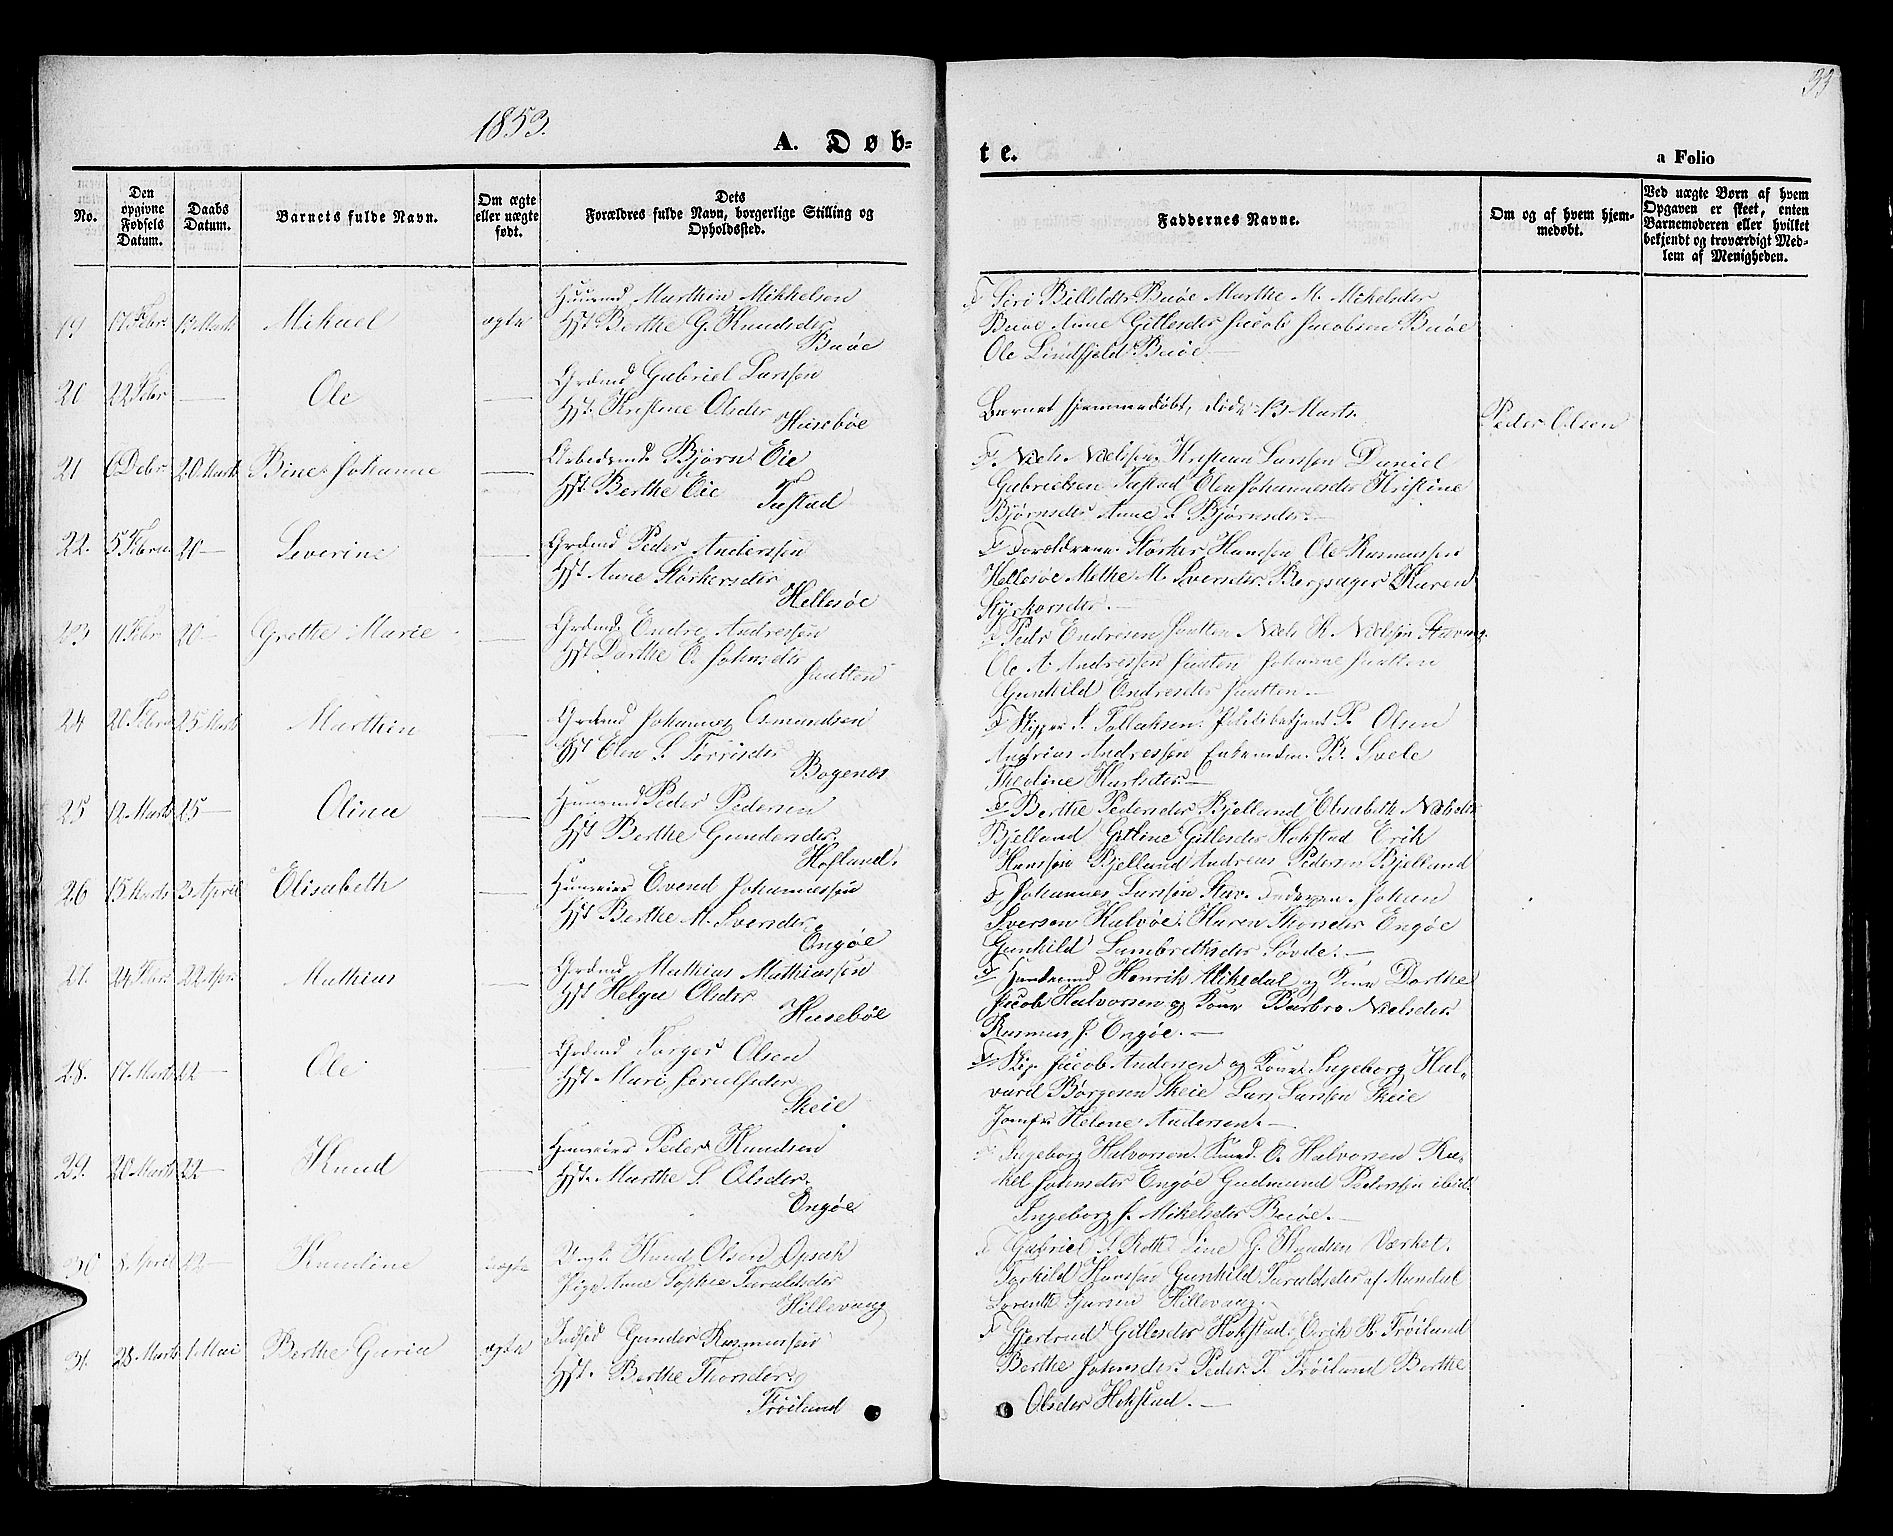 1853.
33
A. Døb-
te.
a Folio
No.
Den opgivne Fødsels Datum.
Daabs Datum.
Barnets fulde Navn.
Om ægte eller uægte født.
Dets Forældres fulde Navn, borgerlige Stilling og Opholdssted.
Faddernes Navne.
Om og af hvem hjemmedøbt.
Ved uægte Børn af hvem Opgaven er skeet, enten Barnemoderen eller hvilket bekjendt og troværdigt Medlem af Menigheden.
19 17 Febr 13 Marts Mikael ægte Huusmd Marthin Mikkelsen
Hst Berthe G. Knudsdtr
Buøe
F Siri Buøe Marthe M. Mikelsdtr
Buøe Anne Gillesdtr Jacob Jacobsen Buøe
Ole Lindhjeld Buøe —
20 22 Febr — Ole — Grdmd Gabriel Larssen
Hst. Kristine Olsdtr
Husebøe
Barnet hjemmedøbt, døde 13 Marts.
Peder Olsen
21 6 Debr 20 Marts Bine Johanne — Arbeidsmd. Bjørn Eie
Hst Berthe Eie
Tastad
F. Niels Nielssen Kristian Larssen Daniel
Gabrielsen Tastad Elen Johannesdtr Kristine
Bjørnsdtr Anne S. Bjørnsdtr. —
22. 5 Febru 20 — Severine — Grdmd Peder Anderssen
Hst Anne Størkersdtr
Hellesøe
F Forældrene Størker Hanssen Ole Rasmussen
Hellesøe Methe M. Sversdtr Bergsager Karen
Styrkorsdtr. —
23 11 Febr 20 — Grethe Marie — Grdmd. Endre Andressen
Hst Dorthe E. Johnsdtr
Jaatten
F Peder Endresen Jaatten Niels K. Nielssen Stavang.
Ole A. Andressen Jaaten Johanne Jaatten
Gunhild Endresdtr Jaatten —
24 20 Febru 25 Marts Marthin — Grdmd Johannes Osmundsen
Hst Elen S. Torrisdtr
Bogenes
F Skipper S. Tollaksen. Politibetjent P. Olsen
Andrias Andressen Enkemden B. Svele
Thedine Karlsdtr —
25 12 Marts 25 — Olina — Huusmd Peder Pedersen
Hst Berthe Gundersdtr
Hofland.
F Berthe Pedersdtr Bjelland Elisabeth Nielsdtr
Bjelland Gitline Gillesdtr Hokstad Erik
Hanssen Bjelland Andreas Pedersen Bjelland
26 15 Marts 3 April Elisabeth — Huuseier Evend Johannessen
Hst Berthe M. Sversdtr
Engøe
F. Johannes Larssen Stav. Faderen. Johan
Sversen Kalvøe. Karen Thorsdtr Engøe
Gunhild Lambrethsdtr Søvde. —
27. 24 Mars 22 Apr. Mathias — Grdmd Mathias Mathiassen
Hst Helga Olsdtr
Husebøe
F Handmd Henrik Mikedal og Kone Dorthe
Jacob Halvorsen og Kone Barbro Nielsdtr
Rasmus J. Engøe. —
28. 17 Marts 22 — Ole Grdmd Torger Olsen
Hst. Mari Serulfsdtr
Skeie
F Skip Jacob Andersen og Kone Ingeborg Hal-
vard Børgesen Skeie Lars Larssen Skeie
Jomfr Helene Andersen. —
29. 20 Marts 22 — Knud — Huuseier Peder Knudsen
Hst. Marthe S. Olsdtr.
Engøe
F Ingeborg Halvorsen. Knud O. Halvorsen Ra-
kel Johnsdtr Engøe Gudmund Pederssen ibid.
Ingeborg J. Mikelsdtr Buøe. —
30 8 April 22 — Knudine uægte Ungk. Knud Olsen Opsak
Pige Ane Sophie Taraldsdtr
Hillevaag
F Gabriel S. Roth Line G. Knudsen Værket.
Torkild Hanssen Gunhild Taraldsdtr af Mandal
Lorentz Hillevaag. —
31. 28 Marts 1 Mai Berthe Guria ægte Indsid Gunder Rasmussen
Hst. Berthe Thorsdtr
Frøiland
F Gjertrud Gillesdtr Hokstad, Erik H. Frøiland
Berthe Johnsdtr. Peder T. Frøiland Berthe
Olsdtr Hokstad. —